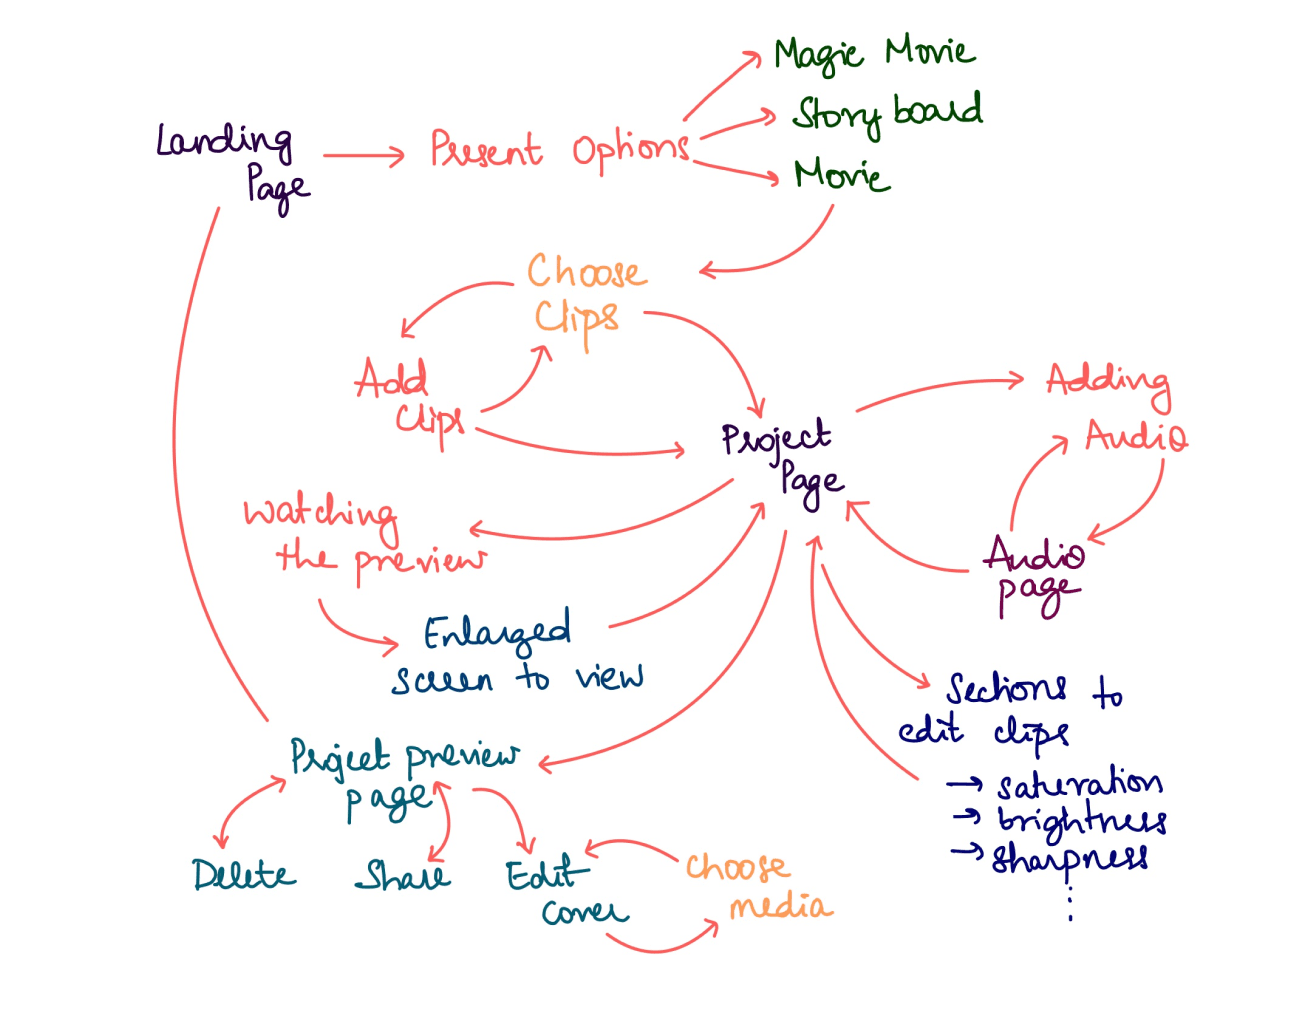 Magic Movie
Story board
Movie
Landing
Page
Present Options
Choose
Clips
Add
Clips
Project
Page
Adding
Audio
Audio
page
Watching
the preview
Enlarged
screen to view
Sections to
edit clips
→ saturation
→ brightness
→ sharpness
Project preview
page
Delete
Share
Edit
Cover
Choose
media